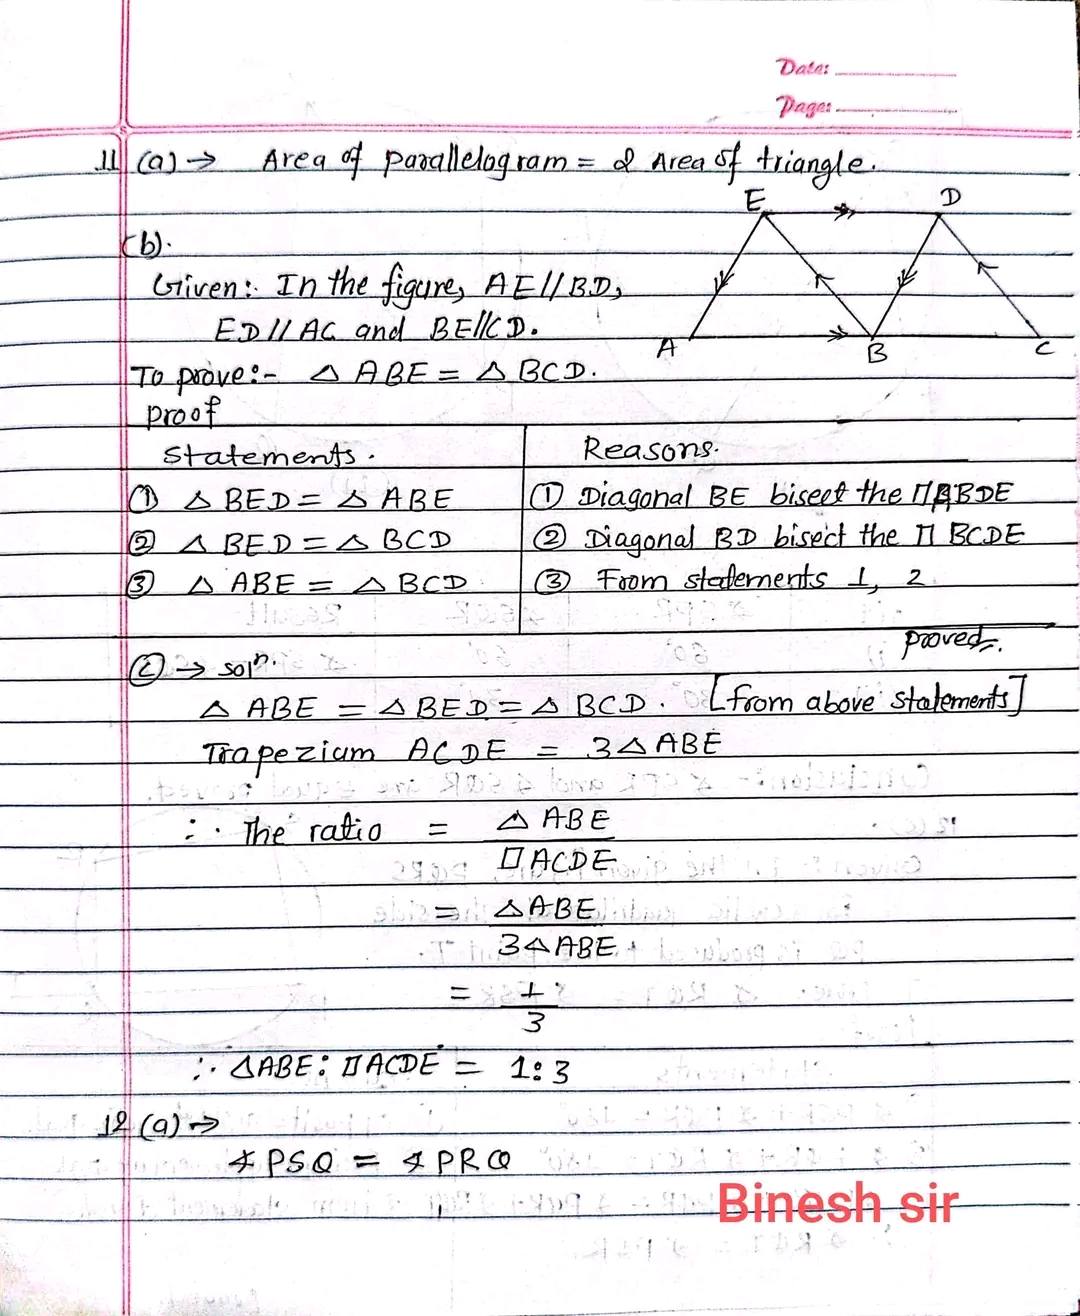 Date:
Page:
11 (a) → Area of parallelogram = 2 Area of triangle.
E D
(b).
Given:- In the figure, AE//BD,
ED//AC and BE//CD.
A B C
To prove:- △ ABE = △ BCD.
Proof
Statements. Reasons.
① △ BED = △ ABE ① Diagonal BE bisect the ▱ABDE
② △ BED = △ BCD ② Diagonal BD bisect the ▱ BCDE
③ △ ABE = △ BCD ③ From statements 1, 2
proved.
(c) → solⁿ.
△ ABE = △ BED = △ BCD. [from above statements]
Trapezium ACDE = 3△ ABE
∴ The ratio = △ ABE
▱ ACDE
= △ABE
3△ABE
= 1
3
∴ △ABE : ▱ACDE = 1:3
12 (a) →
∡PSQ = ∡PRQ
Binesh sir